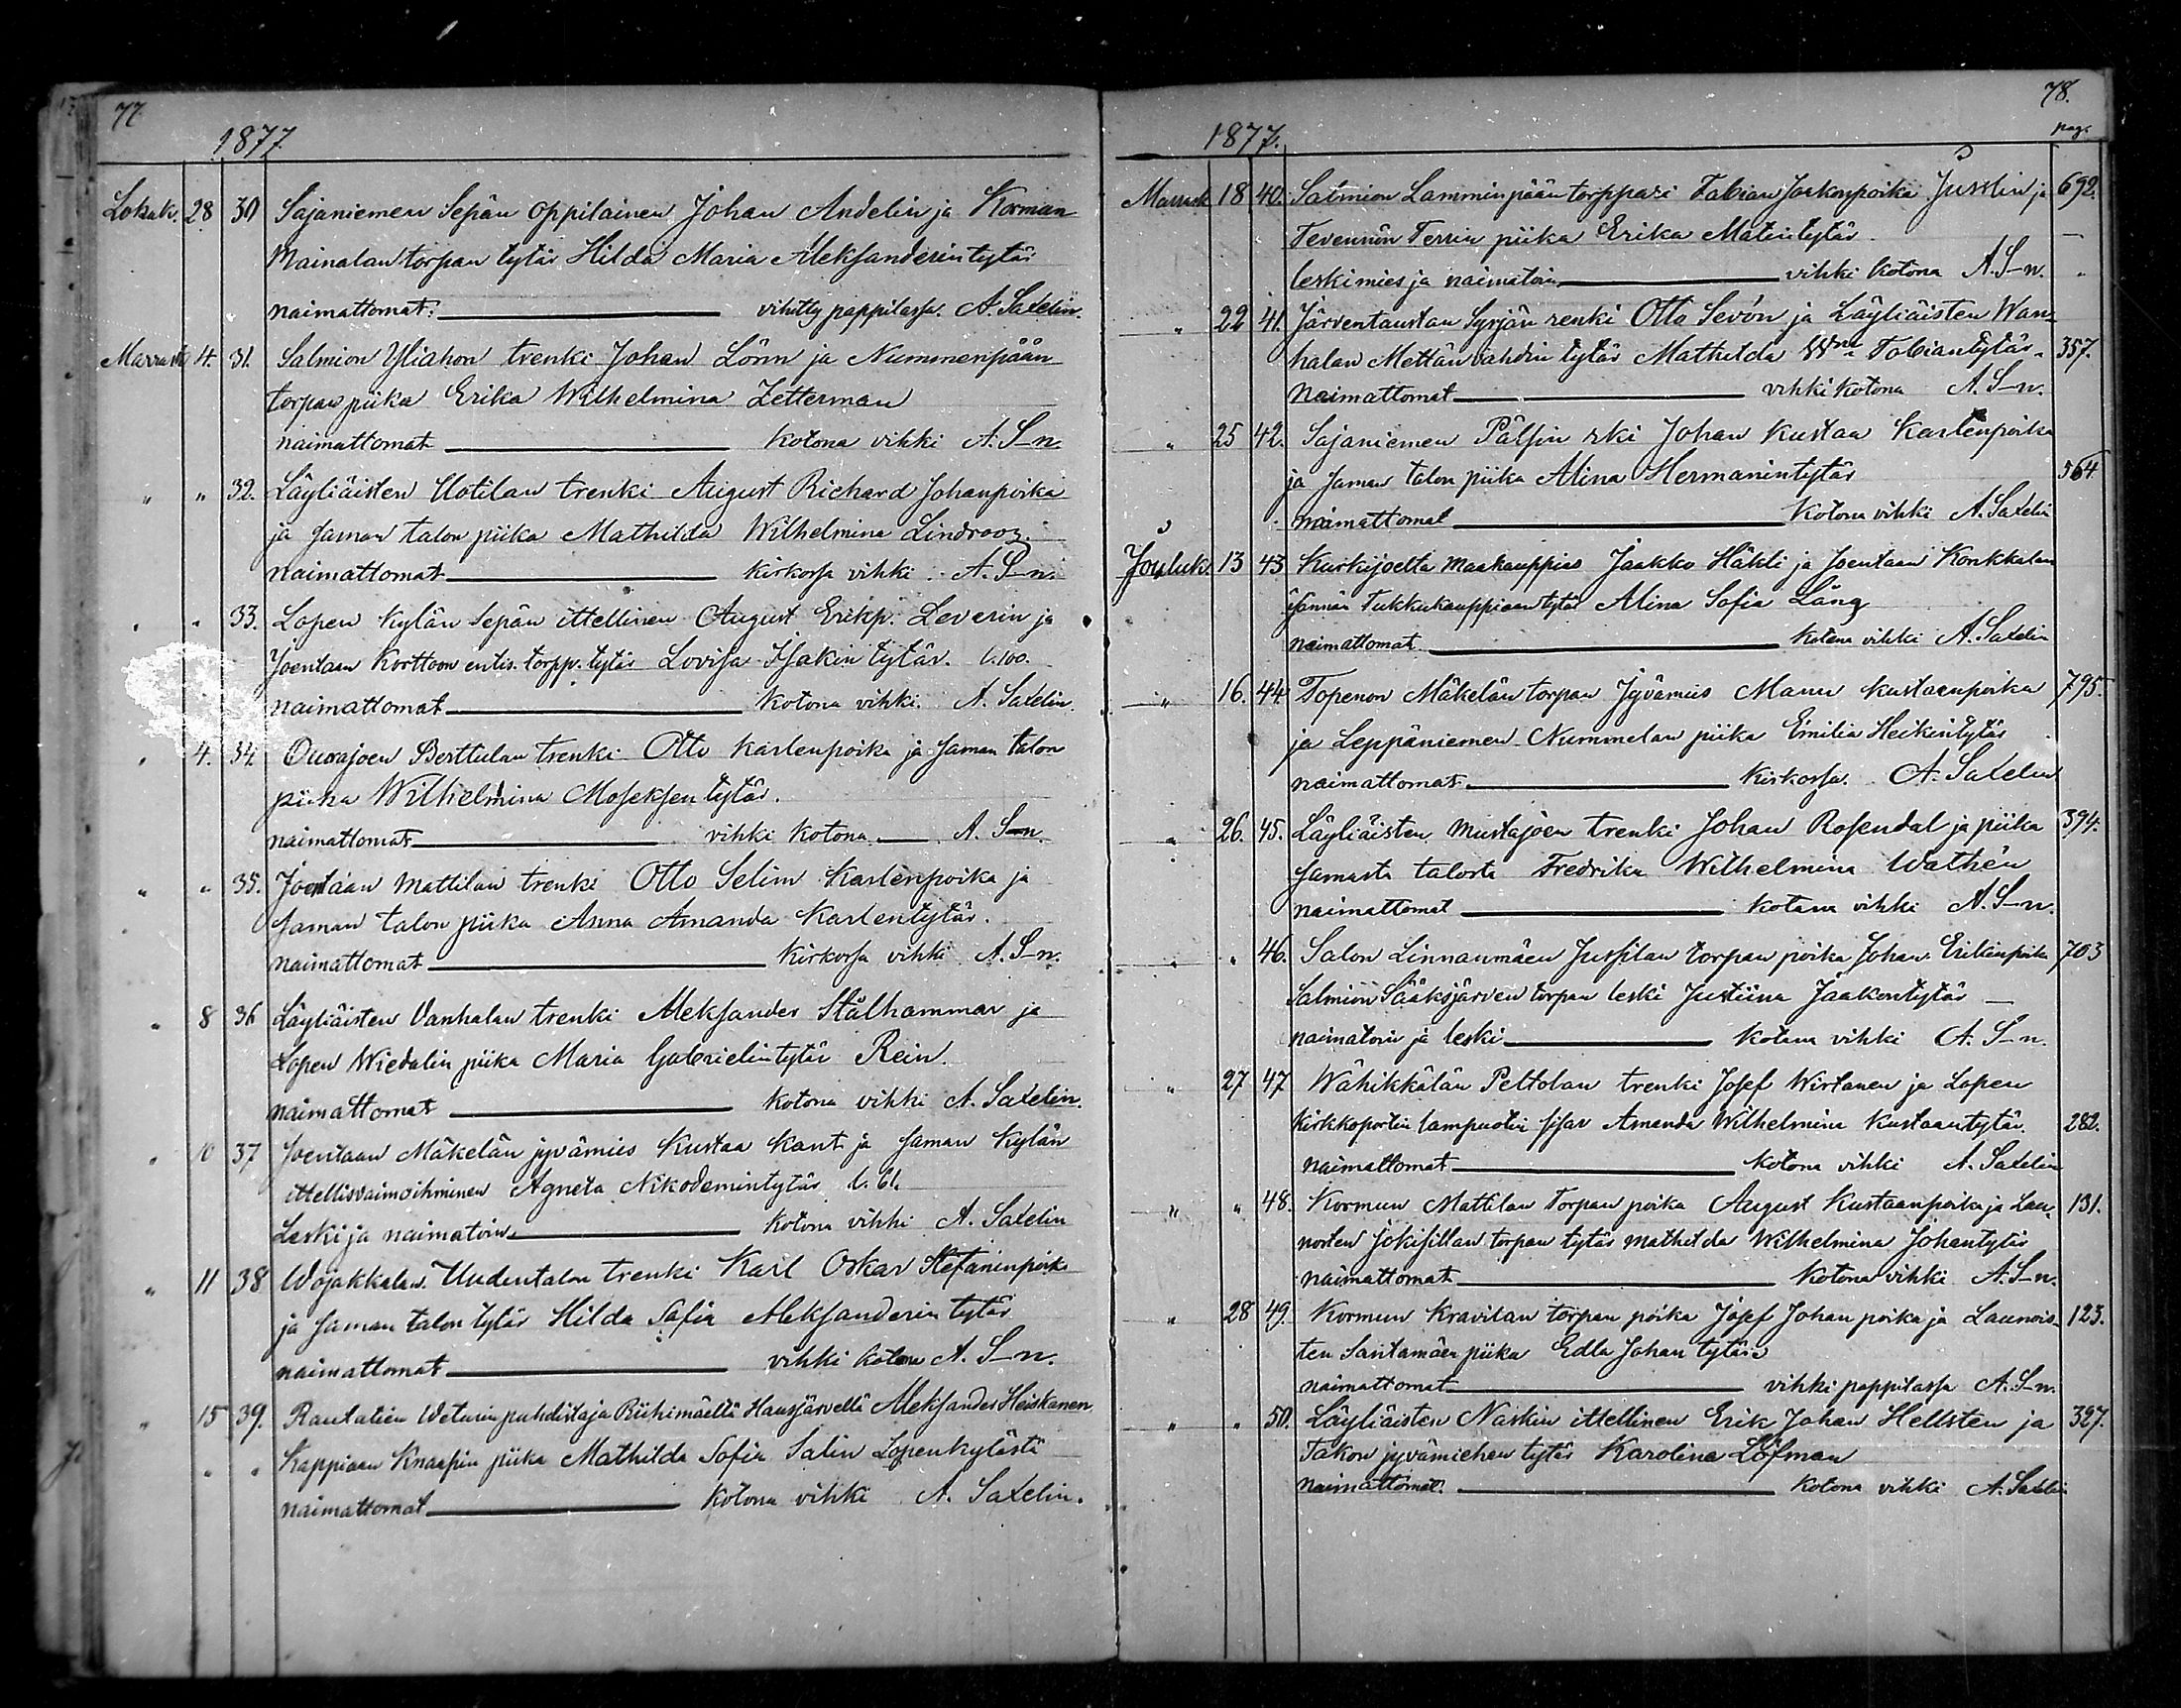 77.
1877.
Lokak. 28. 30 Sajaniemen Sepän oppilainen Johan Andelin ja Korman
Mainalan torpan tytär Hilda Maria Aleksanderintytär
naimattomat. vihitty pappilassa. A. Saxelin.
Marrask. 4. 31. Salmion Yliahon trenki Johan Lönn ja Nummenpään
torpan piika Erika Wilhelmina Zetterman
naimattomat kotona vihki A. S-n.
" " 32. Läyliäisten Uotilan trenki August Richard Johanpoika
ja saman talon piika Mathilda Wilhelmina Lindroos.
naimattomat kirkossa vihki A. S-n.
" " 33. Lopen kylän Sepän ittellinen August Erikp. Leverin ja
Joentaan Korttoon entis. torpp. tytär Lovisa Isakin tytär. l. 100.
naimattomat kotona vihki. A. Saxelin.
" 4. 34. Ourajoen Berttulan trenki Otto Karlenpoika ja saman talon
piika Wilhelmina Moseksen tytär.
naimattomat vihki kotona A. S-n.
" " 35. Joentaan Mattilan trenki Otto Selim Karlenpoika ja
saman talon piika Anna Amanda Karlentytär.
naimattomat kirkossa vihki A. S-n.
" 8 36 Läyliäisten Vanhalan trenki Aleksander Stålhammar ja
Lopen Wiedalin piika Maria Gabrielintytär Rein.
naimattomat kotona vihki A. Saxelin.
" 10 37 Joentaan Mäkelän jyvämies Kustaa Kant ja saman kylän
ittellisvaimoihminen Agneta Nikodemintytär l. 61.
Leski ja naimatoin kotona vihki A. Saxelin
" 11 38 Wojakkalan Uudentalon trenki Karl Oskar Stefaninpoika
ja saman talon tytär Hilda Sofia Aleksanderin tytär
naimattomat vihki kotona A. S-n.
" 15 39. Rautatien Weturin puhdistaja Riihimäellä Hausjärvellä Aleksander Heiskanen
" " Kappiaan Knaapin piika Mathilda Sofia Salin Lopenkylästä
naimattomat kotona vihki A. Saxelin.
78.
1877. pag.
Marrask 18 40. Salmion Lamminpään torppari Fabian Jaakonpoika Jusslin ja 692.
Tevennön Terrin piika Erika Matintytär
leskimies ja naimatoin vihki kotona A. S-n.
" 22 41. Järventaustan Syrjän renki Otto Sevón ja Läyliäisten Wan-
halan Mettänvahdin tytär Mathilda Wna Fabiantytär. 357.
Naimattomat vihki kotona A. S-n.
" 25 42. Sajaniemen Pälsin rki Johan Kustaa Karlenpoika
ja saman talon piika Alina Hermanintytär 564
naimattomat kotona vihki A. Saxelin
Jouluk. 13 43 Kurkijoelta maakauppias Jaakko Häkli ja Joentaan Konkkalan
isännän Tukkukauppiaan tytär Alina Sofia Läng
naimattomat kotona vihki A. Saxelin
" 16. 44. Topenon Mäkelän torpan Jyvämies Manu Kustaanpoika 795.
ja Leppäniemen Nummelan piika Emilia Heikintytär
naimattomat kirkossa. A. Saxelin
" 26. 45. Läyliäisten Mustajoen trenki Johan Rosendal ja piika 394.
samasta talosta Fredrika Wilhelmina Wathén
naimattomat kotona vihki A. S-n.
" " 46. Salon Linnanmäen Jussilan torpan poika Johan Erikinpoika 703
Salmion Sääksjärven torpan leski Justiina Jaakontytär
naimatoin ja leski kotona vihki A. S-n.
" 27 47 Wähikkälän Peltolan trenki Josef Wirtanen ja Lopen
Kirkkoportin lampuotin sisar Amanda Wilhelmina Kustaantytär. 282.
naimattomat kotona vihki A. Saxelin
" " 48. Kormun Mattilan Torpan poika August Kustaanpoika ja Lau- 131.
nosten Jokisillan torpan tytär Mathilda Wilhelmina Johantytär
naimattomat kotona vihki A. S-n.
" 28 49. Kormun Kravilan torpan poika Josef Johanpoika ja Launois- 123.
ten Santamäen piika Edla Johan tytär
naimattomat vihki pappilassa A. S-n.
" " 50. Läyliäisten Naskin ittellinen Erik Johan Hellsten ja 327.
Takon jyvämiehen tytär Karolina Löfman
naimattomat. kotona vihki A. Saxelin